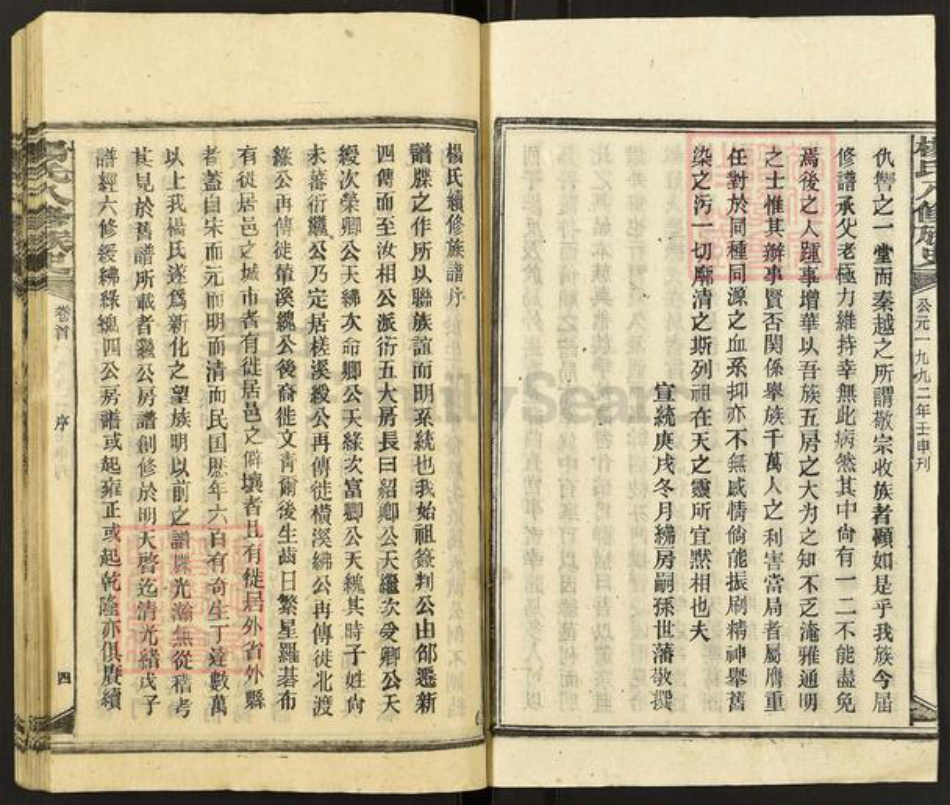 楊氏八修族史
公元一九九二年壬申刊
仇讐之一堂而秦越之所謂敬宗收族者顧如是乎我族今屆
修譜承父老極力維持幸無此病然其中尚有一二不能盡免
焉後之人踵事增華以吾族五房之大为之知不乏淹雅通明
之士惟其辦事賢否關係舉族千萬人之利害當局者屬膺重
任對於同種同源之血系抑亦不無感情倘能振刷精神舉舊
染之污一切廓清之斯列祖在天之靈所宜默相也夫
宣統庚戌冬月紼房嗣孫世藩敬撰
楊氏續修族譜序
譜牒之作所以聯族誼而明系統也我始祖簽判公由邵遷新
四傳而至汝相公派衍五大房長曰紹卿公天繼次爱卿公天
綬次荣卿公天紼次命卿公天綠次富卿公天緫其時子姓尚
未蕃衍繼公乃定居槎溪綬公再傳徙橫溪紼公再傳徙北渡
綠公再傳徙溪緫公後裔徙文靑爾後生齒日繁星羅棊布
有徙居邑之城市者有徙居邑之僻壤者且有徙居外省外縣
者蓋自宋而元而明而清而民国歷年六百有奇生丁達數萬
以上我楊氏遂爲新化之望族明以前之譜牒光瀚無從稽考
其見於舊譜所載者繼公房譜創修於明天啓迄清光緖戊子
譜經六修綬紼綠緫四公房譜或起雍正或起乾隆亦俱賡續
楊氏八修族史
卷首
序
四
FamilySearch